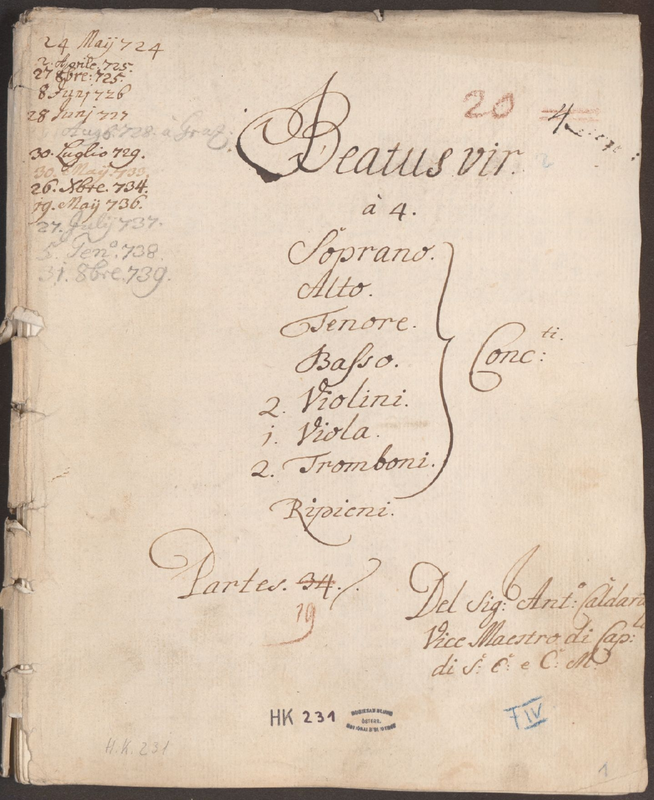 24 Maÿ 724
2. Aprile. 725.
27 8bre: 725.
8 Junj 726
28 Junj 727
Aug 6. 728. à Graz.
30. Luglio 729.
30. Maÿ 733.
26. Xbre. 734.
19. Maÿ 736.
27. Julij 737.
5. Gen.º 738.
31. 8bre. 739.
20
4
Beatus vir.
à 4.
Soprano.
Alto.
Tenore.
Basso.
Conc:ti.
2. Violini.
1. Viola.
2. Tromboni.
Ripieni.
Partes. 34.
19
Del Sig:r Ant:o Caldara
Vice Maestro di Cap:
di S. C. e C. M.
HK 231
H.K. 231
F IV
1